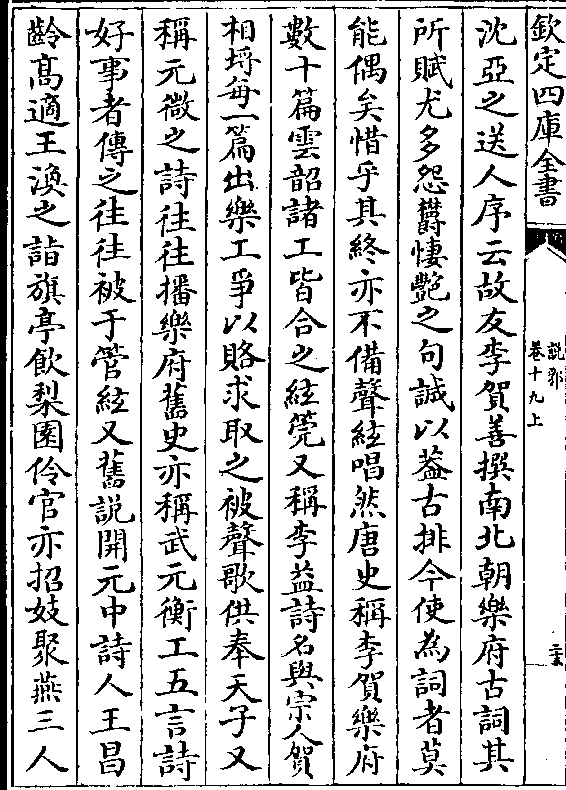 欽定四庫全書
說郛
卷十九上
沈亞之送人序云故友李賀善撰南北朝樂府古詞其
所賦尤多怨鬱悽艷之句誠以葢古排今使為詞者莫
能偶矣惜乎其終亦不備聲絃唱然唐史稱李賀樂府
數十篇雲韶諸工皆合之絃筦又稱李益詩名與宗人賀
相埒每一篇出樂工爭以賂求取之被聲歌供奉天子又
稱元微之詩往往播樂府舊史亦稱武元衡工五言詩
好事者傳之往往被于管絃又舊說開元中詩人王昌
齡高適王渙之詣旗亭飲梨園伶官亦招妓聚燕三人